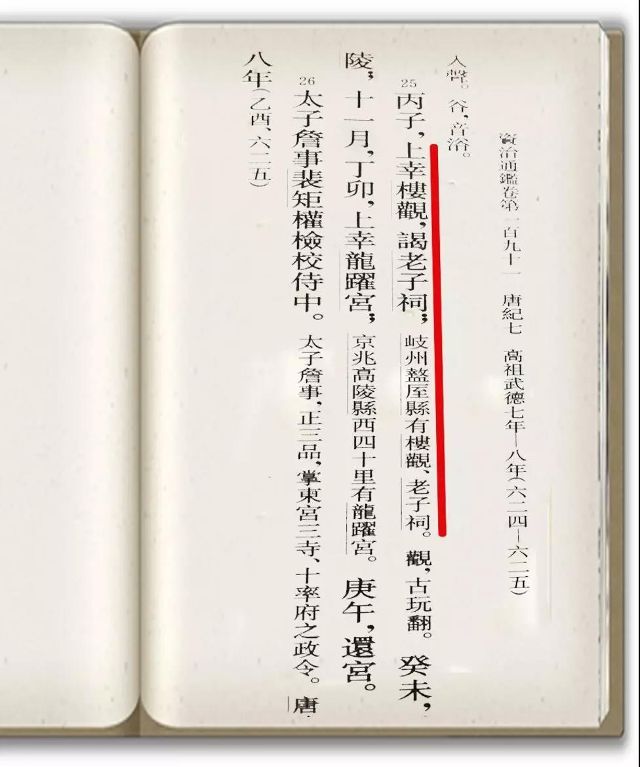 資治通鑑卷第一百九十一　唐紀七　高祖武德七年—八年(六二四—六二五)
入聲。谷，音浴。
25 丙子，上幸樓觀，謁老子祠；岐州盩厔縣有樓觀、老子祠。觀，古玩翻。癸未，
陵；十一月，丁卯，上幸龍躍宮；京兆高陵縣西四十里有龍躍宮。庚午，還宮。
26 太子詹事裴矩權檢校侍中。太子詹事，正三品，掌東宮三寺、十率府之政令。唐
八年(乙酉、六二五)